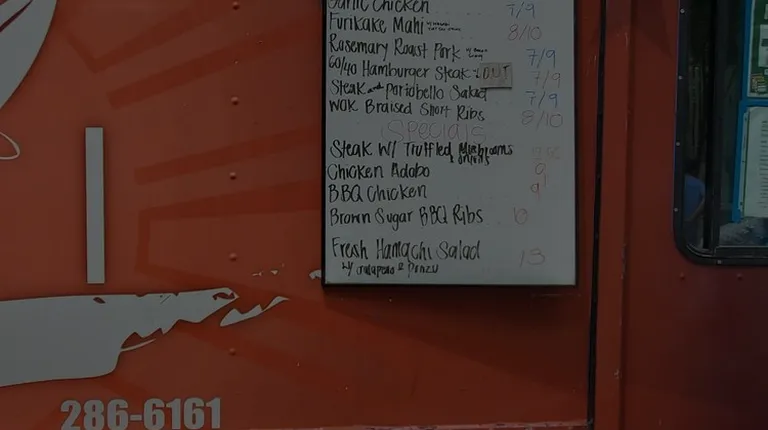 Garlic Chicken 7/9
Furikake Mahi 8/10
Rosemary Roast Pork 7/9
60/40 Hamburger Steak OUT 7/9
Steak and Portobello Salad 7/9
Wok Braised Short Ribs 8/10
Specials
Steak w/ Truffled Mushrooms
& onions
Chicken Adobo 9
BBQ Chicken 9
Brown Sugar BBQ Ribs
Fresh Hamachi Salad 13
w/ Jalapeno & Ponzu
286-6161